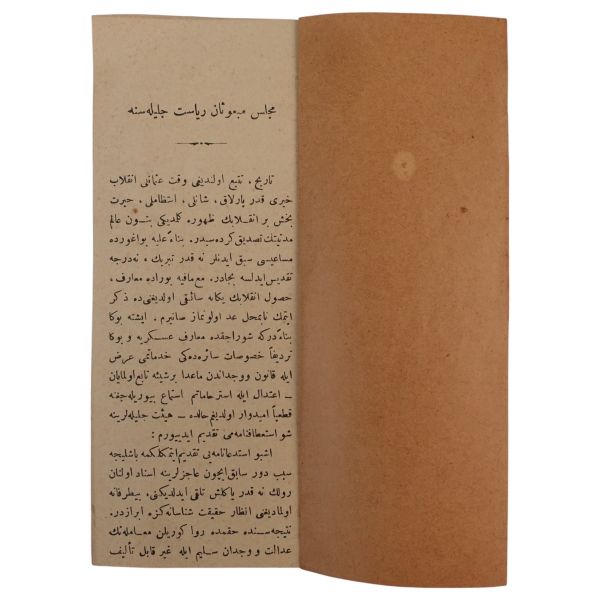 مجلس مبعوثان ریاست جلیله‌سنه
تاریخ، تتبع اولندیغی وقت عثمانلی انقلاب
خبری قدر پارلاق، شانلی، انتظاملی، حیرت
بخش بر انقلابك ظهوره كلمدیكی بتون عالم
مدنیتك تصدیق كرده‌سیدر. بناءً علیه بواغورده
مساعیسی سبق ایدنلر نه قدر تبریك، نه‌درجه
تقدیس ایدلسه بجادر. مع‌مافیه بوراده معارف،
حصول انقلابك یكانه سائقی اولدیغنی‌ده ذكر
ایتمك نابمحل عد اولونماز صانیرم. ایشته بوكا
بناءً دركه شوراجقده معارف عسكریه و بوكا
تردیفاً خصوصات سائره‌ده‌كی خدماتمی عرض
ایله قانون ووجداندن ماعدا برشیئه تابع‌اولمایان
ـ اعتدال ایله استرحاماتم استماع بیوریله‌جغنه
قطعیاً امیدوار اولدیغم‌حالده ـ هیئت جلیله‌لرینه
شو استعطافنامه‌می تقدیم ایدییورم :
اشبو استدعانامه‌یی تقدیم‌ایتمكلكمه باشلیجه
سبب دور سابق‌ایچون عاجزلرینه اسناد اولنان
رولك نه قدر یاكلش تلقی ایدلدیكنی، بیطرفانه
اولمادیغنی انظار حقیقت شناسانه‌كزه ابرازدر.
نتیجه‌سنده حقمده روا كوریلن معامله‌نك
عدالت ووجدان سلیم ایله غیر قابل تألیف